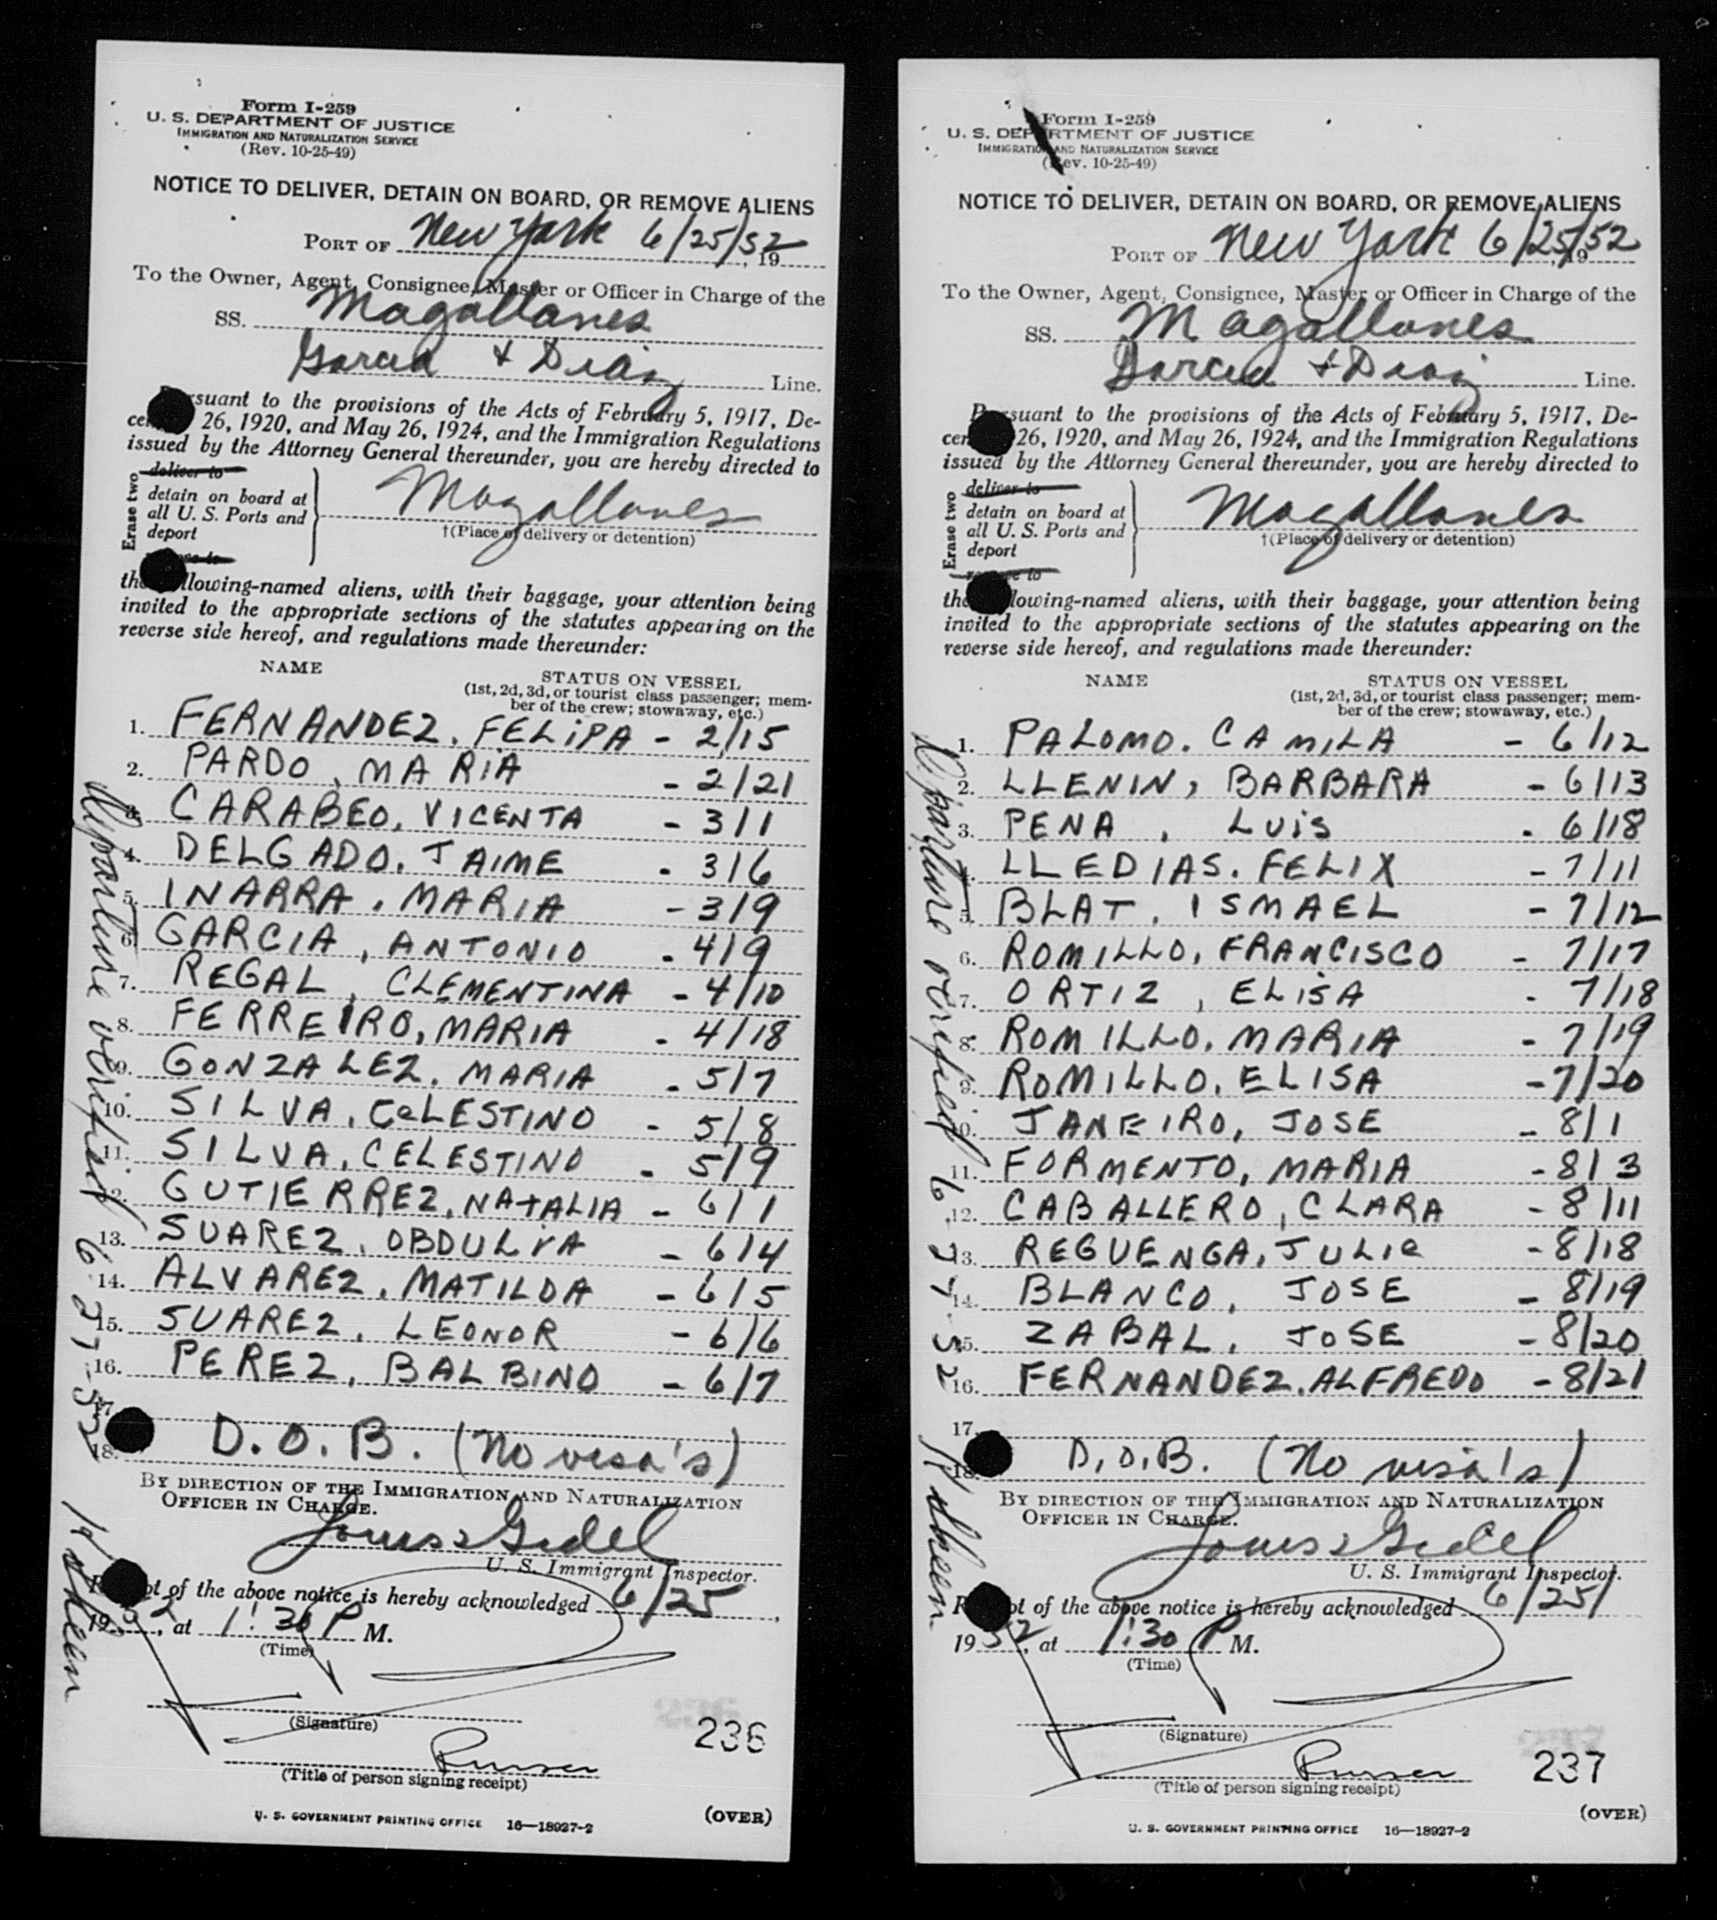 Form I-259
U. S. DEPARTMENT OF JUSTICE
IMMIGRATION AND NATURALIZATION SERVICE
(Rev. 10-25-49)
NOTICE TO DELIVER, DETAIN ON BOARD, OR REMOVE ALIENS
PORT OF New York 6/25/52, 19
To the Owner, Agent, Consignee, Master or Officer in Charge of the
SS. Magallanes
Garcia & Diaz Line.
suant to the provisions of the Acts of February 5, 1917, De-
cem 26, 1920, and May 26, 1924, and the Immigration Regulations
issued by the Attorney General thereunder, you are hereby directed to
Erase two
deliver to
detain on board at
all U. S. Ports and
deport
Magallanes
†(Place of delivery or detention)
the llowing-named aliens, with their baggage, your attention being
invited to the appropriate sections of the statutes appearing on the
reverse side hereof, and regulations made thereunder:
NAME
STATUS ON VESSEL
(1st, 2d, 3d, or tourist class passenger; mem-
ber of the crew; stowaway, etc.)
1. FERNANDEZ, FELIPA - 2/15
2. PARDO, MARIA - 2/21
3. CARABEO, VICENTA - 3/1
4. DELGADO, JAIME - 3/6
5. INARRA, MARIA - 3/9
6. GARCIA, ANTONIO - 4/9
7. REGAL, CLEMENTINA - 4/10
8. FERREIRO, MARIA - 4/18
9. GONZALEZ, MARIA - 5/7
10. SILVA, CELESTINO - 5/8
11. SILVA, CELESTINO - 5/9
12. GUTIERREZ, NATALIA - 6/1
13. SUAREZ, OBDULIA - 6/4
14. ALVAREZ, MATILDA - 6/5
15. SUAREZ, LEONOR - 6/6
16. PEREZ, BALBINO - 6/7
17.
18. D.O.B. (No visa's)
Departure verified 6-27-52
BY DIRECTION OF THE IMMIGRATION AND NATURALIZATION
OFFICER IN CHARGE.
U. S. Immigrant Inspector.
of the above notice is hereby acknowledged 6/25,
1952, at 1:30 P M.
(Time)
(Signature)
Purser
(Title of person signing receipt)
236
U. S. GOVERNMENT PRINTING OFFICE 16—18927-2
(OVER)
Form I-259
U. S. DEPARTMENT OF JUSTICE
IMMIGRATION AND NATURALIZATION SERVICE
(Rev. 10-25-49)
NOTICE TO DELIVER, DETAIN ON BOARD, OR REMOVE ALIENS
PORT OF New York 6/25/52, 19
To the Owner, Agent, Consignee, Master or Officer in Charge of the
SS. Magallanes
Garcia & Diaz Line.
Pursuant to the provisions of the Acts of February 5, 1917, De-
cem 26, 1920, and May 26, 1924, and the Immigration Regulations
issued by the Attorney General thereunder, you are hereby directed to
Erase two
deliver to
detain on board at
all U. S. Ports and
deport
remove to
Magallanes
†(Place of delivery or detention)
the lowing-named aliens, with their baggage, your attention being
invited to the appropriate sections of the statutes appearing on the
reverse side hereof, and regulations made thereunder:
NAME
STATUS ON VESSEL
(1st, 2d, 3d, or tourist class passenger; mem-
ber of the crew; stowaway, etc.)
1. PALOMO, CAMILA - 6/12
2. LLENIN, BARBARA - 6/13
3. PENA, LUIS - 6/18
4. LLEDIAS, FELIX - 7/11
5. BLAT, ISMAEL - 7/12
6. ROMILLO, FRANCISCO - 7/17
7. ORTIZ, ELISA - 7/18
8. ROMILLO, MARIA - 7/19
9. ROMILLO, ELISA - 7/20
10. JANEIRO, JOSE - 8/1
11. FORMENTO, MARIA - 8/3
12. CABALLERO, CLARA - 8/11
13. REGUENGA, JULIA - 8/18
14. BLANCO, JOSE - 8/19
15. ZABAL, JOSE - 8/20
16. FERNANDEZ, ALFREDO - 8/21
17.
18. D.O.B. (No visa's)
Departure verified 6-27-52
BY DIRECTION OF THE IMMIGRATION AND NATURALIZATION
OFFICER IN CHARGE.
U. S. Immigrant Inspector.
of the above notice is hereby acknowledged 6/25/
1952, at 1:30 P M.
(Time)
(Signature)
Purser
(Title of person signing receipt)
237
U. S. GOVERNMENT PRINTING OFFICE 16—18927-2
(OVER)